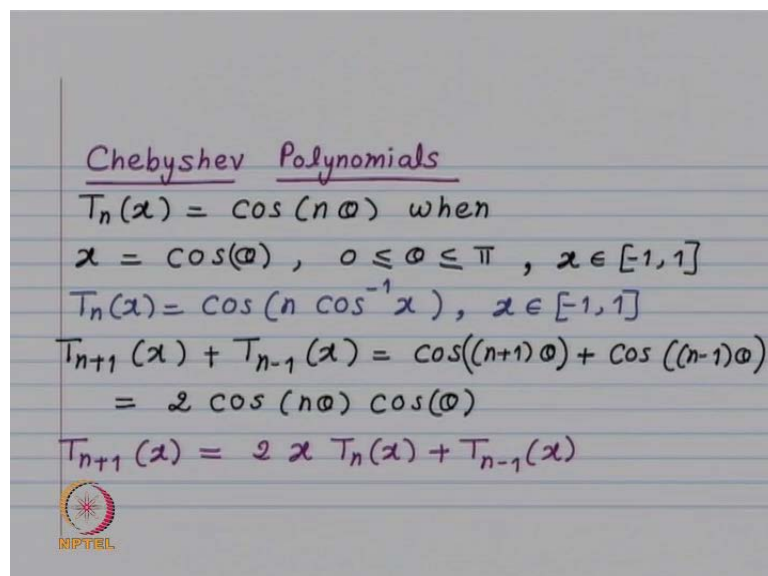 Chebyshev Polynomials
Tₙ(x) = cos(nθ) when
x = cos(θ), 0 ≤ θ ≤ π, x ∈ [-1, 1]
Tₙ(x) = cos(n cos⁻¹x), x ∈ [-1, 1]
Tₙ₊₁(x) + Tₙ₋₁(x) = cos((n+1)θ) + cos((n-1)θ)
= 2 cos(nθ) cos(θ)
Tₙ₊₁(x) = 2 x Tₙ(x) + Tₙ₋₁(x)
NPTEL